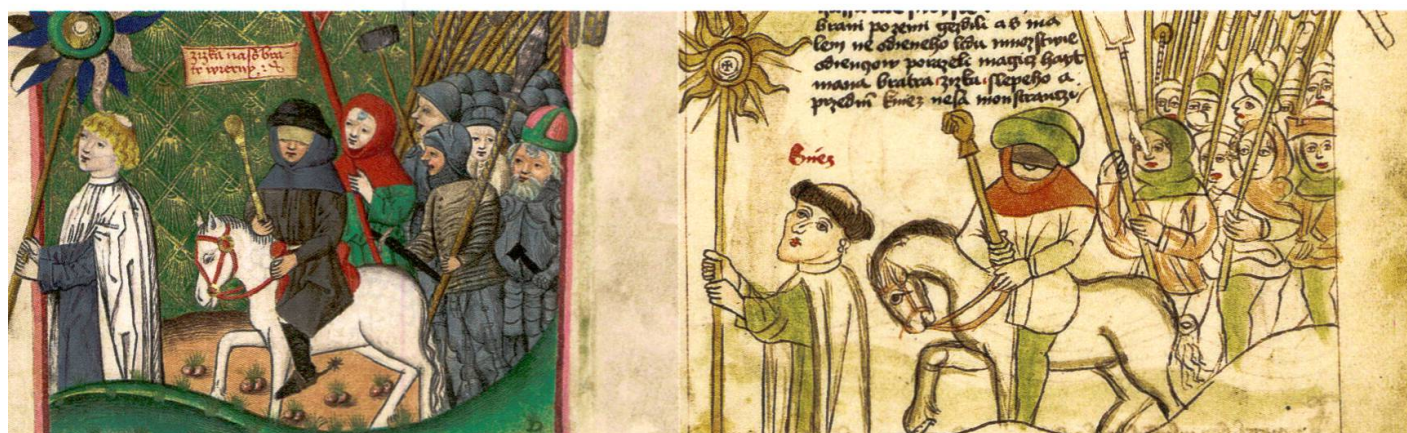 zizka nass bra
tr wierny
brani po zemi gezdili a s ma
lem ne odieneho lidu mnozstwie
odiencow porazeli magicz hayt
mana bratra zizku slepeho a
przednim kniez nesa monstranczi
kniez